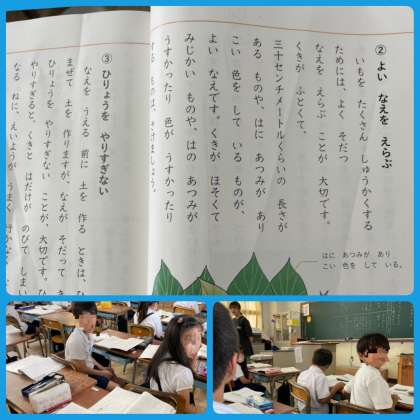 ② よい なえを えらぶ
いもを たくさん しゅうかくする
ためには、よく そだつ
なえを えらぶ ことが 大切です。
くきが ふとくて、
三十センチメートルくらいの 長さが
ある ものや、はに あつみが あり
こい 色を して いる ものが、
よい なえです。くきが ほそくて
みじかい ものや、はの あつみが
うすかったり 色が うすかったり
する ものは、さけましょう。
はに あつみが あり
こい 色を して いる。
③ ひりょうを やりすぎない
なえを うえる 前に 土を 作る ときは、ひ
まぜて 土を 作りますが、なえが そだって き
ひりょうを やりすぎない ことが、大切です。ひ
やりすぎると、くきと はだけが のびて しまい
なる ねに、えいようが うまく 行かなく